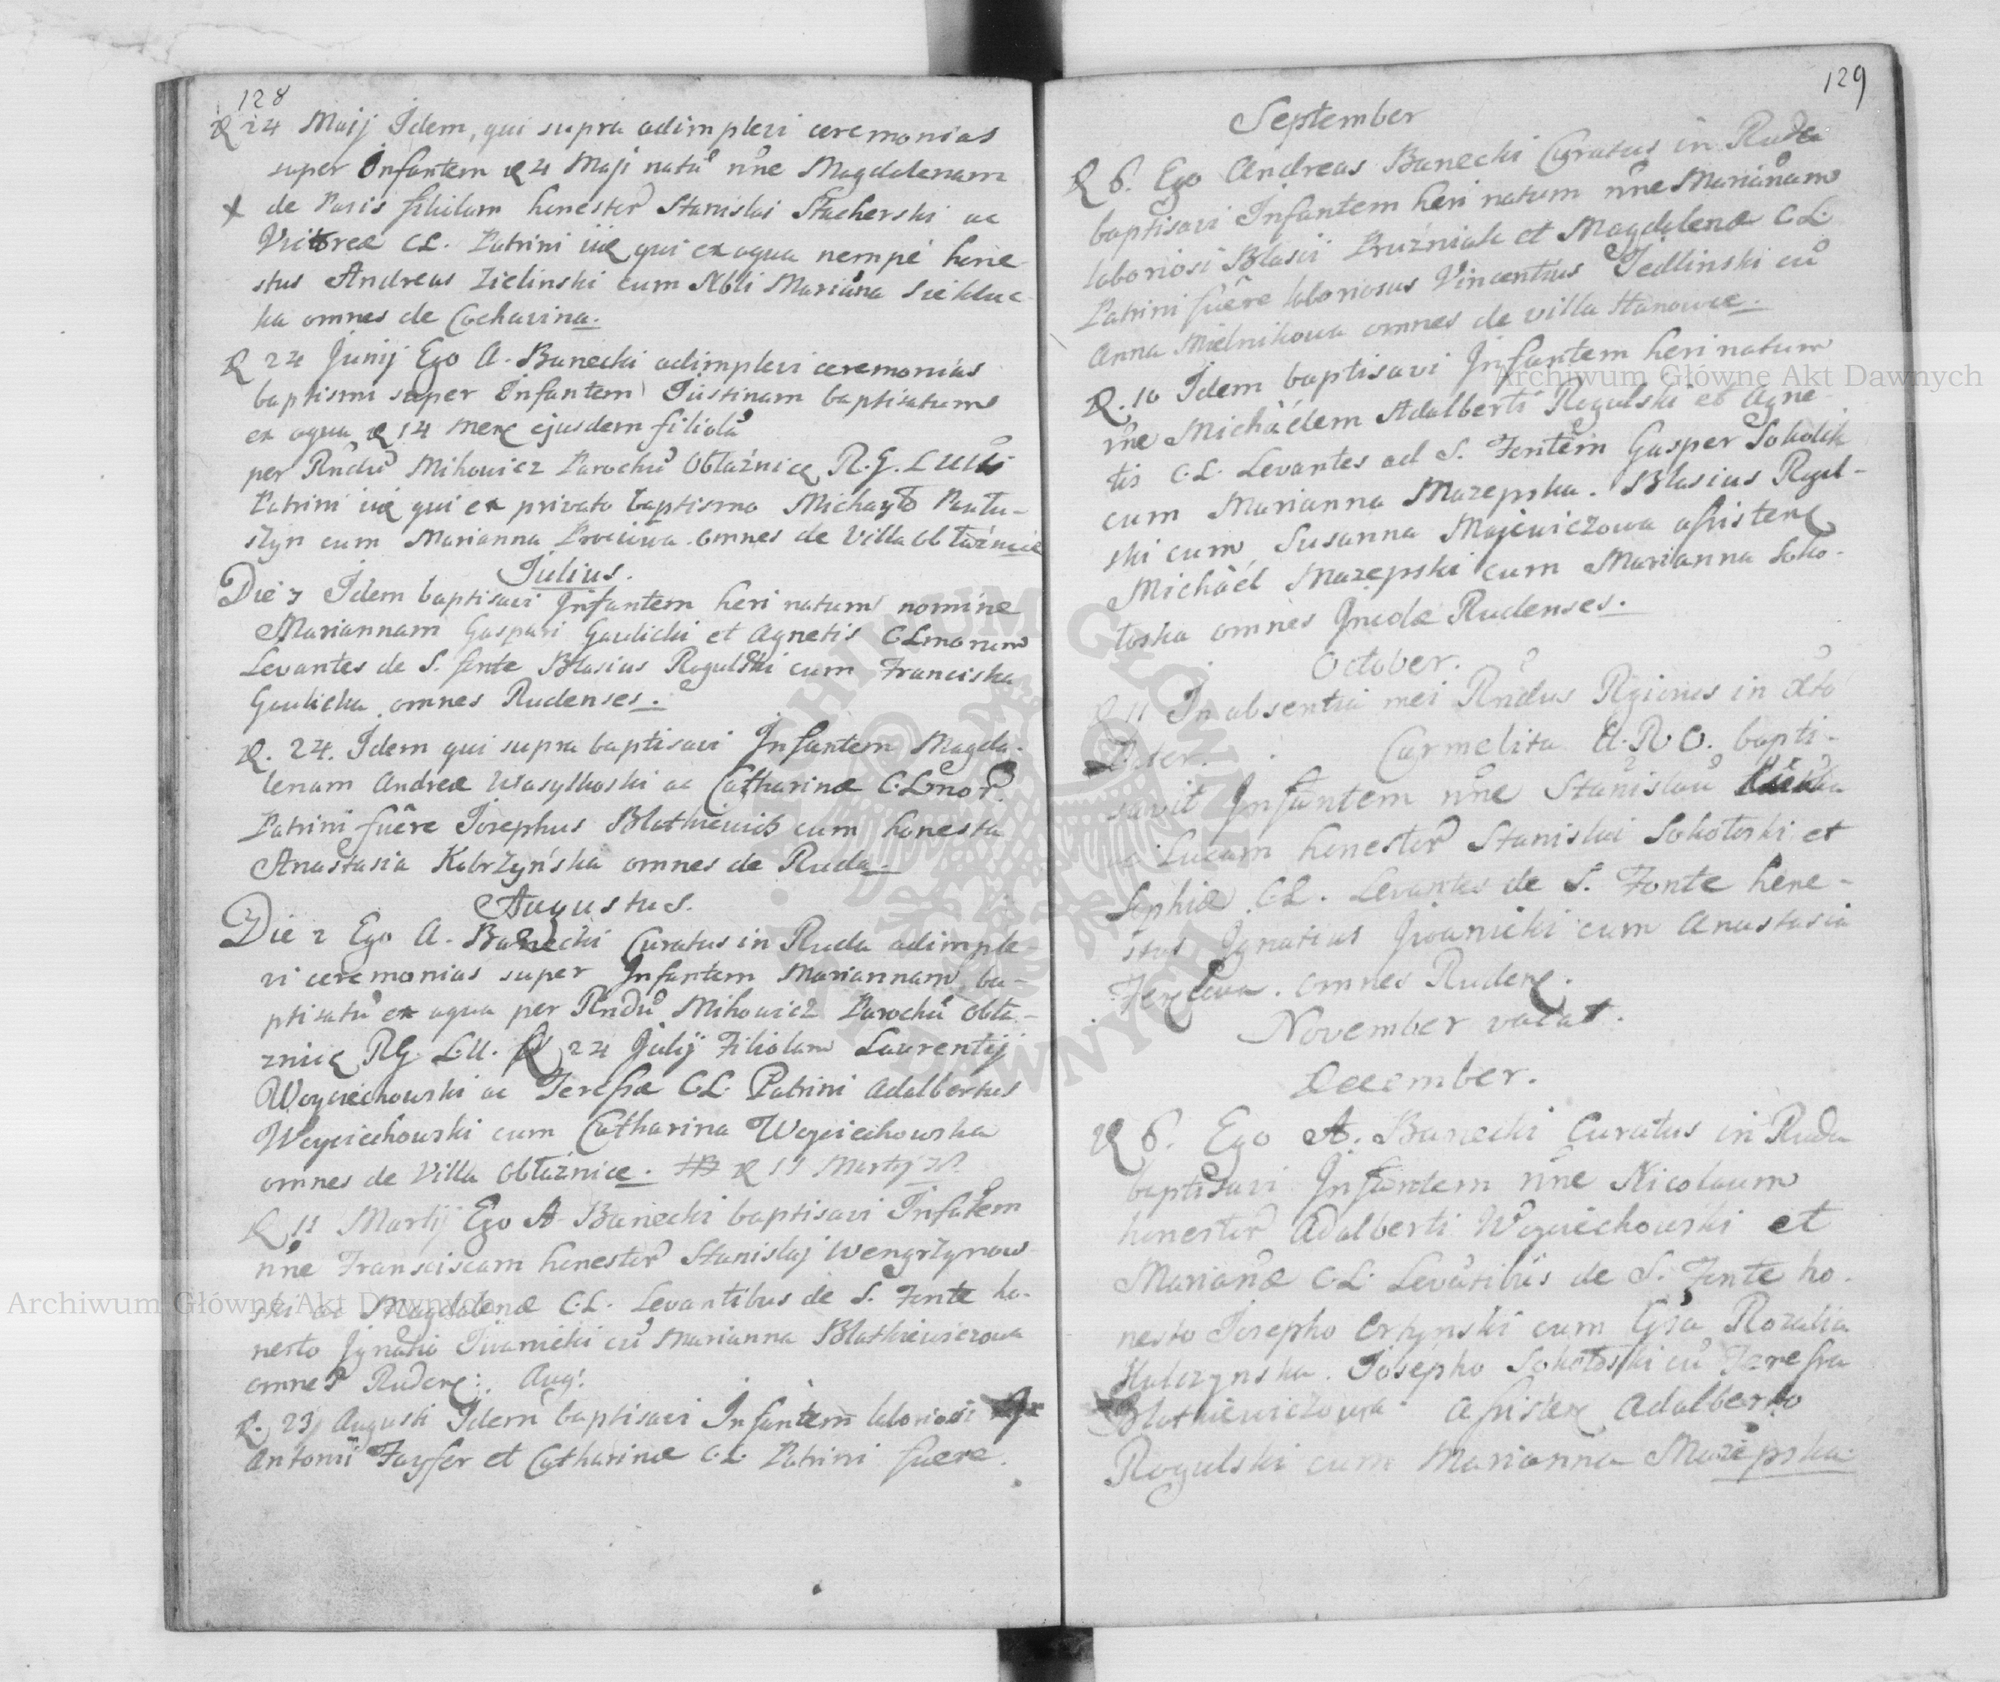 128
24 Maij Idem, qui supra adimplevi ceremonias
super Infantem 4 Maji natū nn̄e Magdalenam
de Paris filiolam honestor Stanislai Stacherski ac
Victoreæ C.L. Patrini iiq qui ex aqua nempé hone-
stus Andreas Zielinski cum Nbli Mariāna Siekluc-
ka omnes de Cochavina.
24 Junij Ego A. Banecki adimplevi ceremonias
baptismi super Infantem Justinam baptisatum
ex aqua 14 mens ejusdem filiolā
per Rndū Mihowicz Parochū Obłaźnice R.G.
Patrini iiq qui ex privato baptismo Michayło Pantu-
szyn cum Marianna omnes de Villa Obłaźnice
Julius.
Die 7 Idem baptisavi Infantem heri natum nomine
Mariannam Gaspari Gaulicki et Agnetis CLmorum
Levantes de S. fonte Blasius Rogulski cum Franciska
Gaulicka omnes Rudenses.
24. Idem qui supra baptisavi Infantem Magda-
lenam Andreæ Wasylkoski ac Catharinæ C.L.mor.
Patrini fuēre Josephus Blotkiewicz cum honesta
Anastasia Kobrzyńska omnes de Ruda
Augustus.
Die 2 Ego A. Banecki Curatus in Ruda adimple-
vi ceremonias super Infantem Mariannam ba-
ptisatū ex aqua per Rndū Mihowicz Parochū Obła-
znice RG. L.U. 24 Julij Filiolam Laurentij
Woyciechowski ac Teressæ C.L. Patrini Adalbertus
Woyciechowski cum Catharina Woyciechowska
omnes de Villa Obłaźnice. 11 Martij
11 Martij Ego A. Banecki baptisavi Infatem
nn̄e Franciscam honestor Stanislaj Wengrzynow-
ski ac Magdalenæ C.L. Levantibus de S. Fonte ho-
nesto Jgnatio Iwanicki cū Marianna Blotkiewiczowa
omnes Rudens: Aug:
23 Augusti Idem baptisavi Infantem laboriosi
Antonii Fayfer et Catharinæ C.L. Patrini fuere.
129
September
6. Ego Andreas Banecki Curatus in Ruda
baptisavi Infantem heri natum nn̄e Mariānam
laboriosi Blasii Pruźniak et Magdalenæ C.L.
Patrini fuēre laboriosus Vincentius Jedlinski cū
Anna Mielnikowa omnes de villa Hanowce.
10 Idem baptisavi Infantem heri natum
nn̄e Michäelem Adalberti Rogulski et Agne-
tis C.L. Levantes ad S. Fontem Gasper Sokolik
cum Marianna Mazepska. Blasius Rogul-
ski cum Susanna Majewiczowa assistens
Michäel Mazepski cum Marianna Soko-
łoska omnes Incolæ Rudenses.
October.
11 In absentia mei Rndus Rgionus in Xto
Pater. Carmelita A.R.O. bapti-
savit Infantem nn̄e Stanislaū
ac Lucam honestor Stanislai Sokołoski et
Sophiæ C.L. Levantes de S. Fonte hone-
stus Jgnatius Jwanicki cum Anastasia
omnes Rudens.
November vacat.
December.
6. Ego A. Banecki Curatus in Ruda
baptisavi Infantem nn̄e Nicolaum
honestor Adalberti Woyciechowski et
Mariānæ C.L. Levātibus de S. Fonte ho-
nesto Josepho Orzynski cum Gsa Rozalia
Hulczynska. Josepho Sokołoski cū Teressa
Blotkiewiczowa assistens Adalberto
Rogulski cum Marianna Mazepska.
Archiwum Główne Akt Dawnych
Archiwum Główne Akt Dawnych